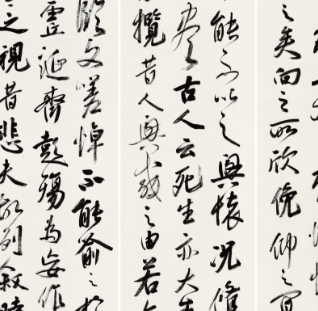 之矣向之所欣俛仰之間
能不以之興懷況脩
盡古人云死生亦大矣
攬昔人興感之由若合
臨文嗟悼不能喻之於
虛誕齊彭殤為妄作
之視昔悲夫故列敘時